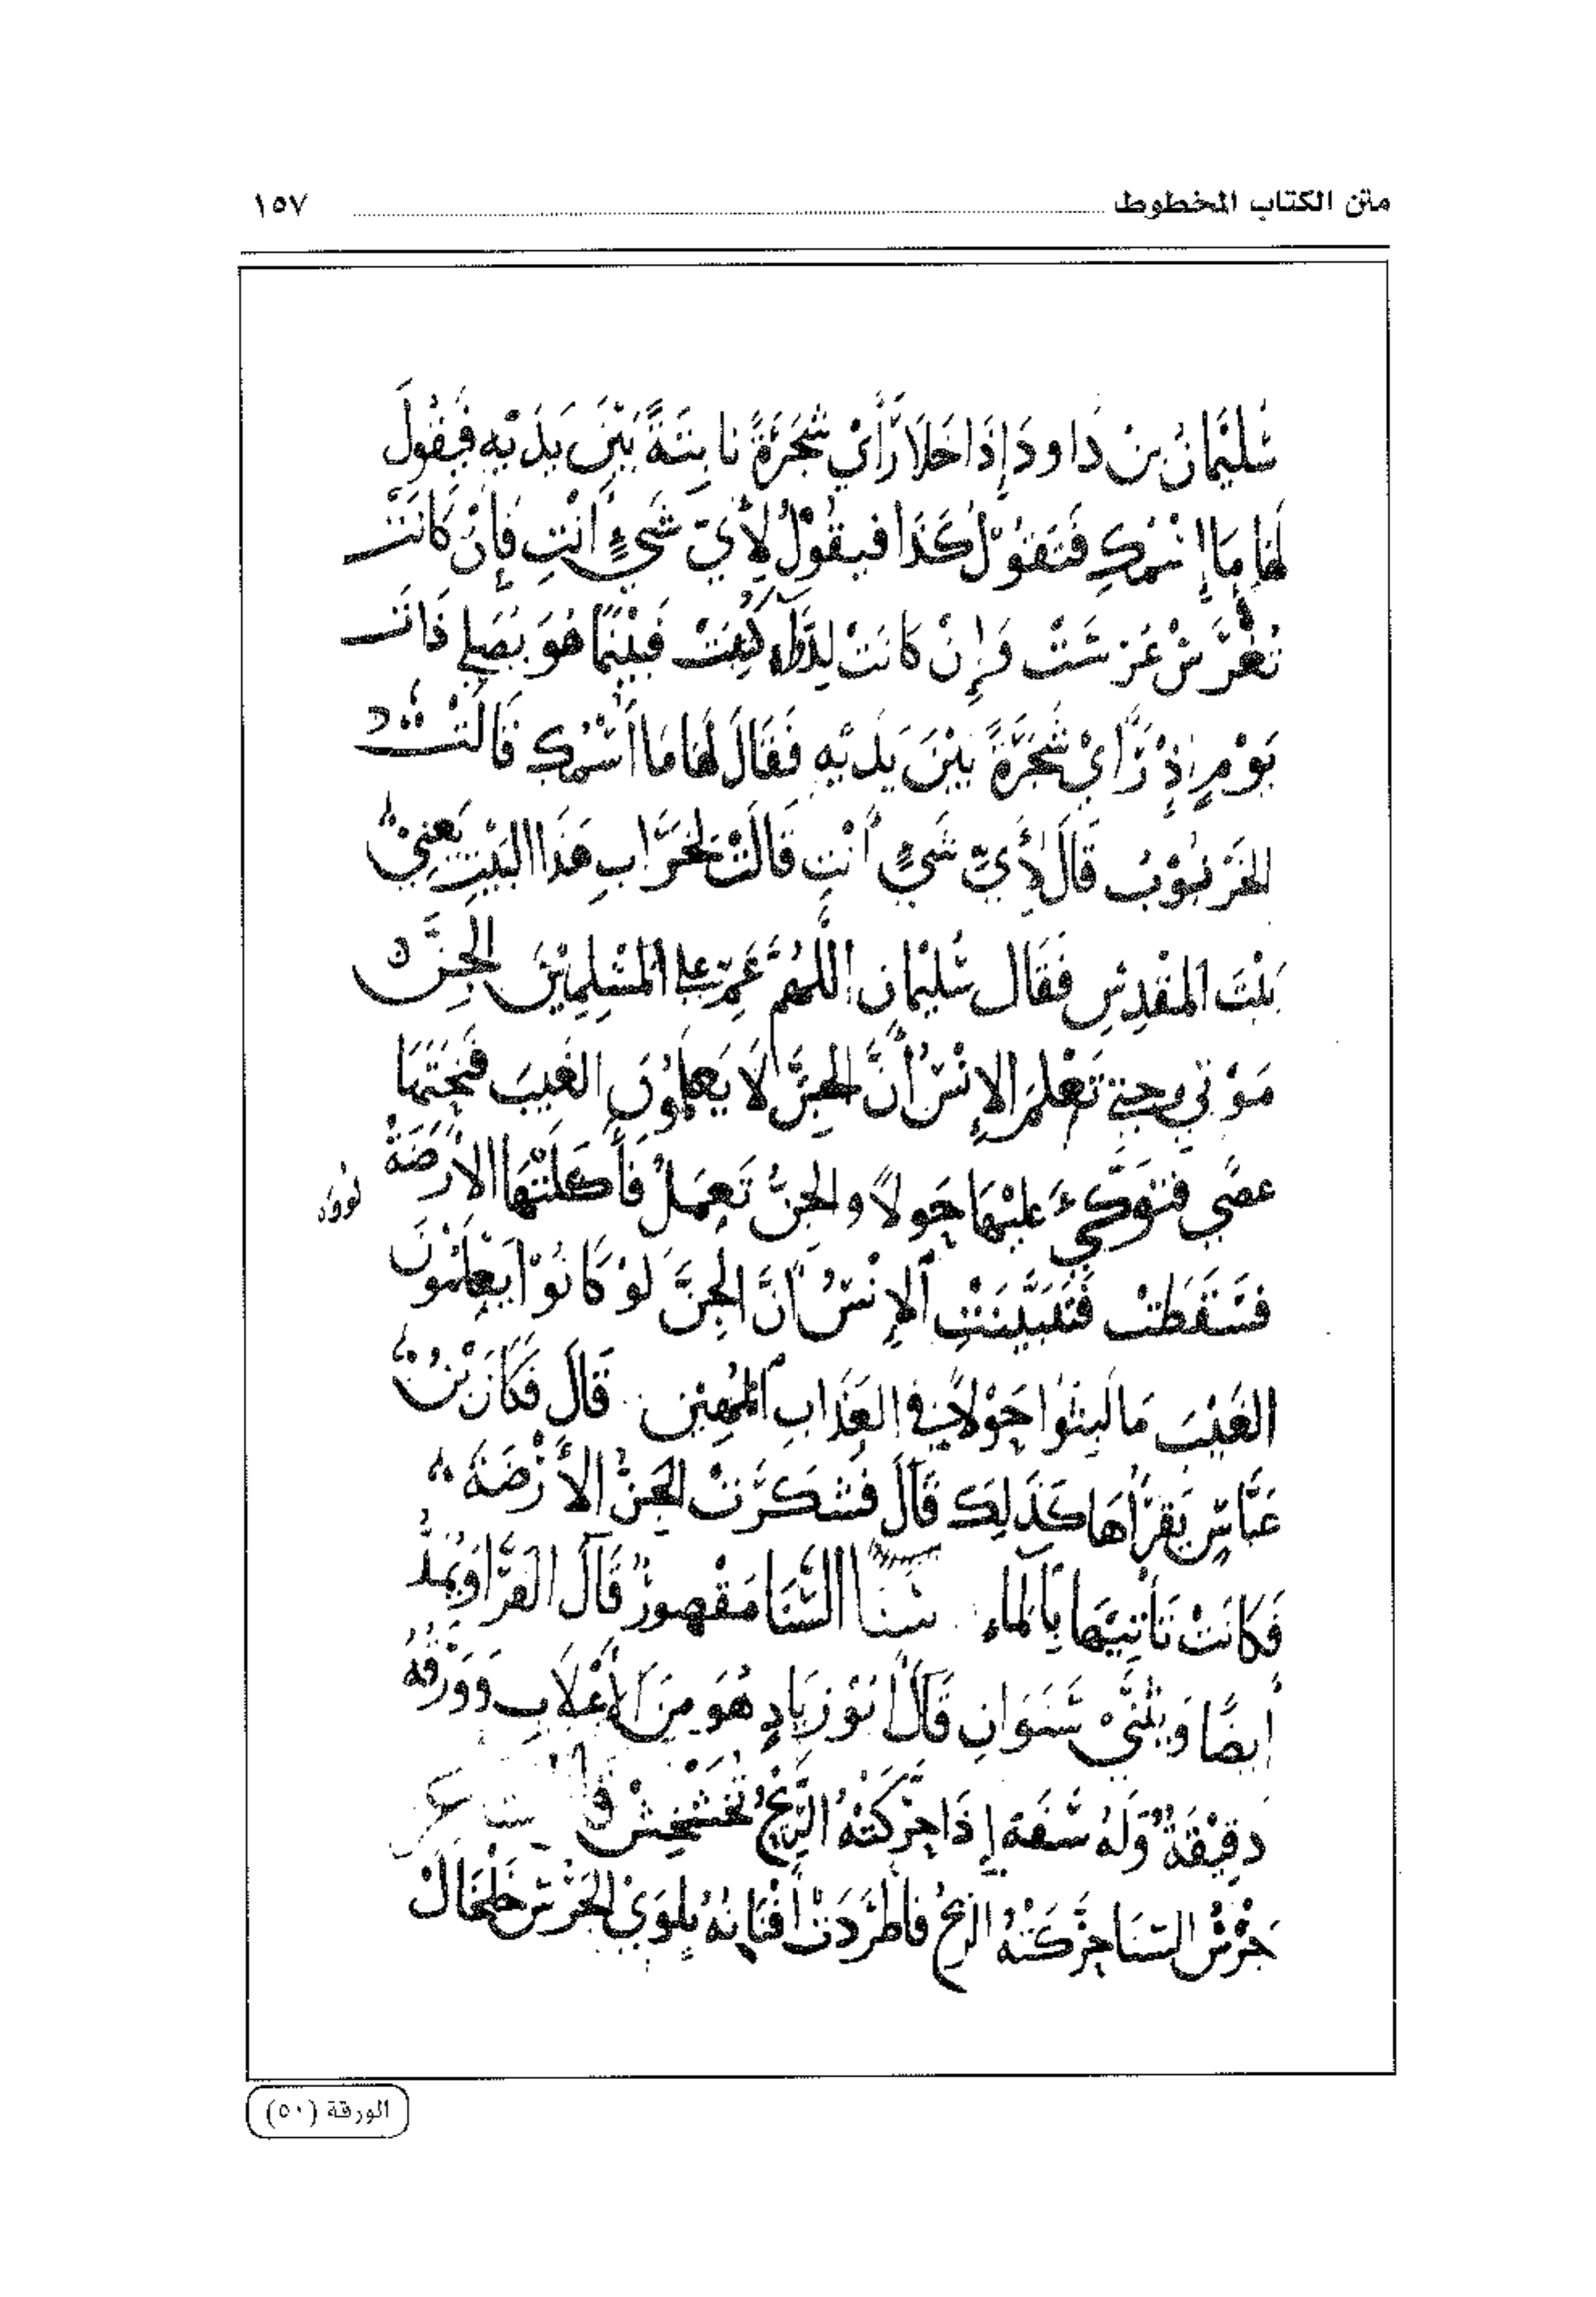 متن الكتاب المخطوط ١٥٧
سُلَيْمَانُ بنْ دَاودَ إِذَا خَلَا رَأَىْ شَجَرَةً نابِتَةً بَيْنَ يَدَيْهِ فَيَقُولَ
لَهَا مَا إِسْمُكِ فَتَقُوْلُ كَذَا فيقُوْلُ لِأَيِّ شَيْءٍ أَنْتِ فَإِنْ كَانَتْ
تُغْرَسُ غَرَسَتْ وَإِنْ كَانَتْ لِدَوَاءٍ كُتِبَتْ فَبَيْنَمَا هُوَ يُصَلِّي ذَاتَ
يَوْمٍ إِذْ رَأَىْ شَجَرَةً بَيْنَ يَدَيْهِ فَقَالَ لَهَا مَا أسْمُكِ قَالَتْ
الخَرْنُوْبُ قَالَ لِأَيِّ شَيْءٍ أَنْتِ قَالَتْ لِخَرَابِ هَذَا البَيْتِ يَعْنِيْ
بَيْتَ المَقْدِسِ فَقَال سُلَيْمان اللَّهُمَّ عَمِّ عَلى المُسْلِمِيْنَ الجِنَّ
مَوْتي حتى تَعْلَمَ الإِنْسُ أَنَّ الجِنَّ لَا يَعْلَمُوْنَ الغَيبَ فَنَحَتَهَا
عصًى فَتَوَكَّيءَ عَلَيْهَا حَولاً والجِنُّ تَعمَلُ فَأَكَلَتْهَا الأَرَضَةُ
فَسَقَطَتْ فَتَبَيَّنَتِ الإِنْسُ أَنَّ الجِنَّ لَوْ كَانُوْا يَعْلَمُوْنَ
الغَيْبَ مَا لَبِثُوا حَوْلاً في العَذَابِ المُهِيْنِ قَالَ فَكَانَ بْنُ
عَبَّاسٍ يَقرَأُهَا كَذَلِكَ قَالَ فَشَكَرَتْ الجِنُّ الأَرَضَةَ
فَكَانَتْ تَأتِيْهَا بِالمَاءِ سَنَا السَّنَا مَقْصورٌ قَالَ الفَرَّا وَيُمَدُّ
أيضًا وَيُثَنَّىْ سَنَوَانِ قَالَ أَبوْ زيَادٍ هُوَ مِنَ الأَغْلَابِ وَوَرَقُهُ
دقِيْقَةٌ وَلَهُ سَنَفَة إِذَا حَرَّكَتْهُ الرِّيْحُ تُخَشْخِشْ
جَرْسُ السَنَا حَرَّكَتْهُ الريْحُ فاطَّرَدَتْ أَفْنَانهُ
الورقة (٥٠)